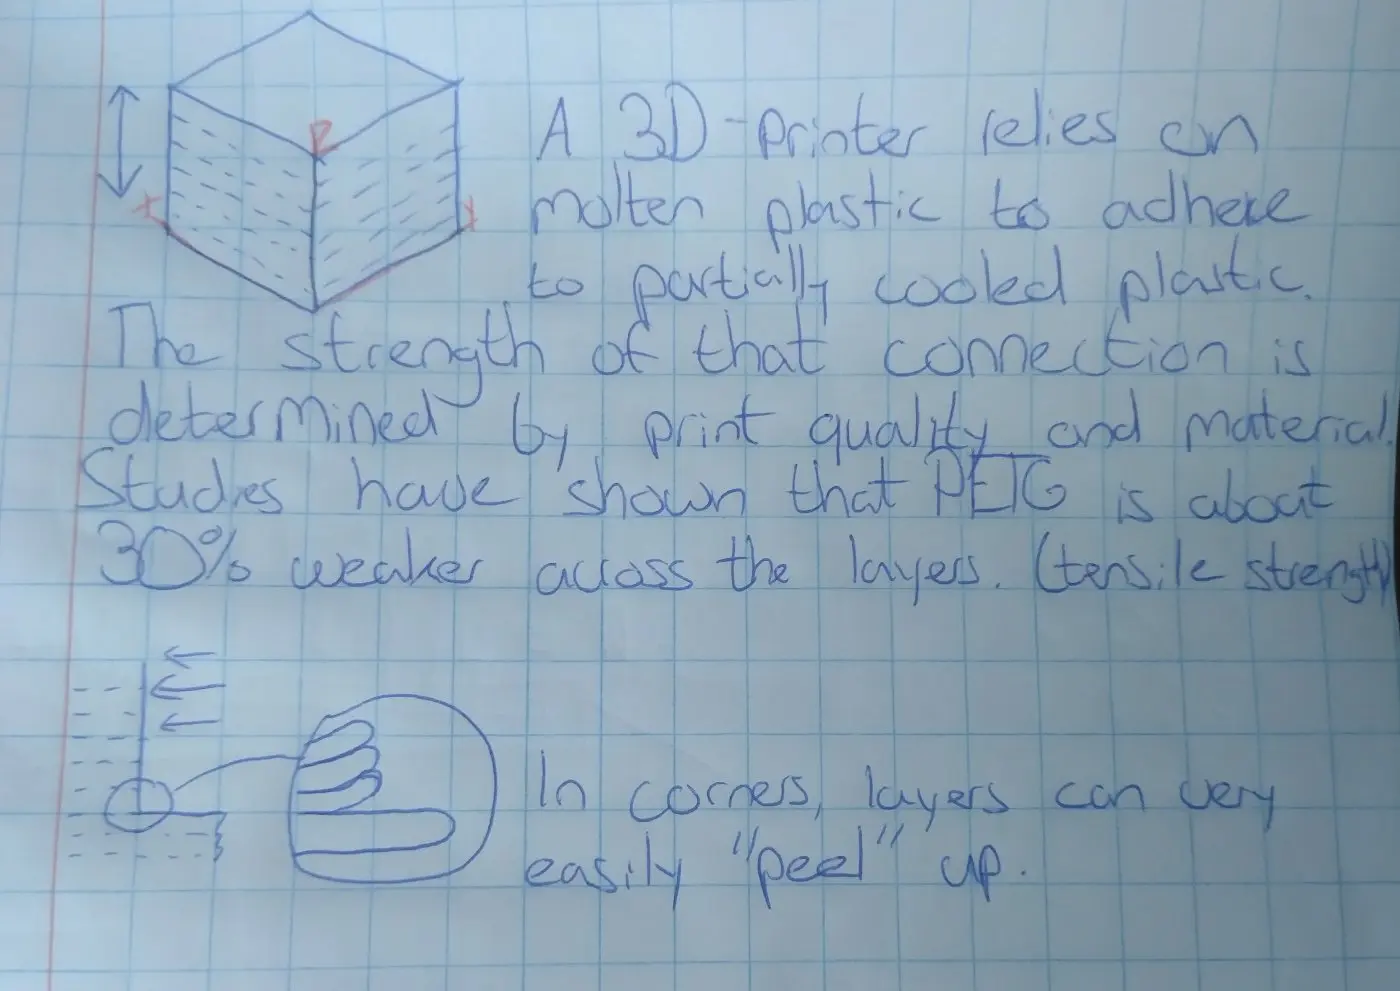 A 3D-printer relies on
molten plastic to adhere
to partially cooled plastic.
The strength of that connection is
determined by print quality and material.
Studies have shown that PETG is about
30% weaker across the layers. (tensile strength)
In corners, layers can very
easily "peel" up.